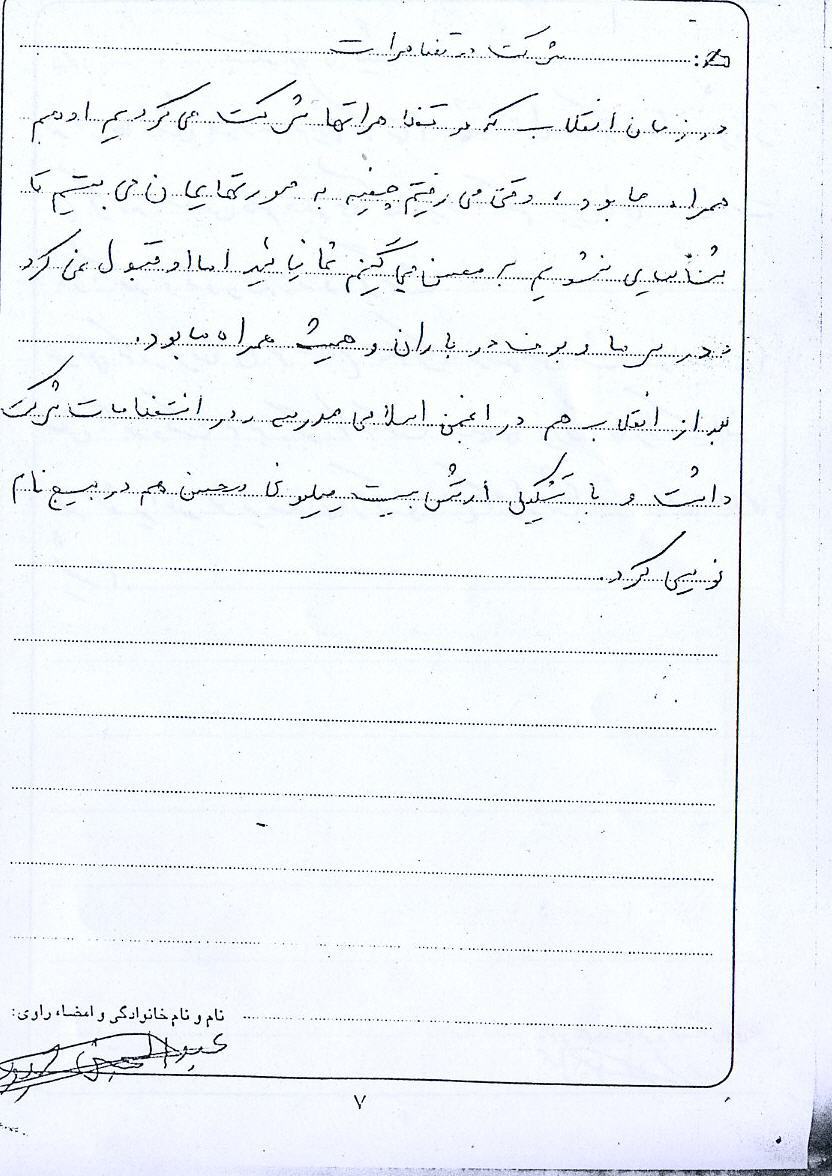 شرکت در تظاهرات
در زمان انقلاب که در تظاهراتها شرکت می کردیم او هم
همراه ما بود، وقتی می رفتیم چفیه به صورتهایمان می بستیم تا
شناسایی نشویم به محسن می گفتیم شما نیائید اما او قبول نمی کرد
و در سرما و برف در باران و همیشه همراه ما بود.
بعد از انقلاب هم در انجمن اسلامی مدرسه و در انتظامات شرکت
داشت و با تشکیل ارتش بیست میلیونی محسن هم در بسیج نام
نویسی کرد.
نام و نام خانوادگی و امضاء راوی:
۷